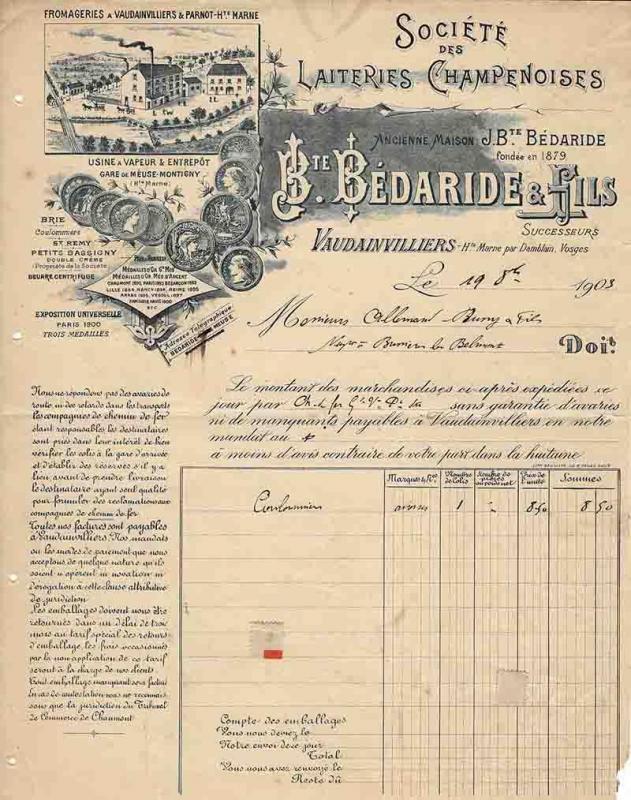 FROMAGERIES A VAUDAINVILLIERS & PARNOT-HTE MARNE
SOCIÉTÉ
DES
LAITERIES CHAMPENOISES
ANCIENNE MAISON J. BTE BÉDARIDE
fondée en 1879
BTE. BÉDARIDE & FILS
SUCCESSEURS
VAUDAINVILLIERS - Hte Marne par Damblain, Vosges
USINE A VAPEUR & ENTREPÔT
GARE DE MEUSE-MONTIGNY
(Hte Marne)
BRIE
Coulommiers
ST REMY
PETITS BASSIGNY
DOUBLE CRÈME
(Propriété de la Société
BEURRE CENTRIFUGE
MÉDAILLES D'OR GD MOD
MÉDAILLES D'OR, MED. D'ARGENT
CHAUMONT 1890, PARIS 1892 BESANÇON 1893
LILLE 1894, NANCY 1894, REIMS 1895
ARRAS 1896, VESOUL 1897
ETC
EXPOSITION UNIVERSELLE
PARIS 1900
TROIS MÉDAILLES
Adresse Télégraphique
BÉDARIDE MEUSE
Le 19 8bre 1903
Messieurs & Fils
Doit
Le montant des marchandises ci-après expédiées ce
jour par sans garantie d'avaries
ni de manquants payables à Vaudainvilliers en notre
mandat au
à moins d'avis contraire de votre part dans la huitaine
Nous ne répondons pas des avaries de
route, ni des retards dans les transports
les compagnies de chemin de fer
étant responsables les destinataires
sont priés dans leur intérêt de bien
vérifier les colis à la gare d'arrivée
et d'établir des réserves s'il y a
lieu, avant de prendre livraison
le destinataire ayant seul qualité
pour formuler des réclamations aux
compagnies de chemin de fer
Toutes nos factures sont payables
à Vaudainvilliers. Nos mandats
ou les modes de paiement que nous
acceptons de quelque nature qu'ils
soient n'opèrent ni novation ni
dérogation à cette clause attributive
de juridiction
Les emballages doivent nous être
retournés dans un délai de trois
mois au tarif spécial des retours
d'emballage, les frais occasionnés
par la non-application de ce tarif
seront à la charge de nos clients.
Tout emballage manquant sera facturé
En cas de contestation nous ne reconnais
sons que la juridiction du Tribunal
de Commerce de Chaumont
Marques & Nos
Nombre de Colis
Prix de l'unité
Sommes
Coulommiers 1 8 50 8 50
Compte des emballages
Vous nous deviez le
Notre envoi de ce jour
Total
Vous nous avez renvoyé le
Reste dû